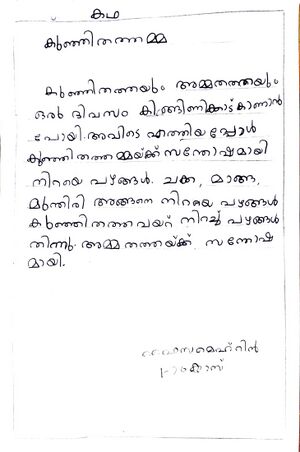 കഥ
കുഞ്ഞിതത്തമ്മ
കുഞ്ഞിതത്തയും അമ്മതത്തയും
ഒരു ദിവസം കിങ്ങിണിക്കാട് കാണാൻ
പോയി. അവിടെ എത്തിയപ്പോൾ
കുഞ്ഞിതത്തമ്മയ്ക്ക് സന്തോഷമായി
നിറയെ പഴങ്ങൾ. ചക്ക, മാങ്ങ,
മുന്തിരി അങ്ങനെ നിറയെ പഴങ്ങൾ
കുഞ്ഞിതത്ത വയറ് നിറച്ച് പഴങ്ങൾ
തിന്നു. അമ്മതത്തയ്ക്ക് സന്തോഷ
മായി.